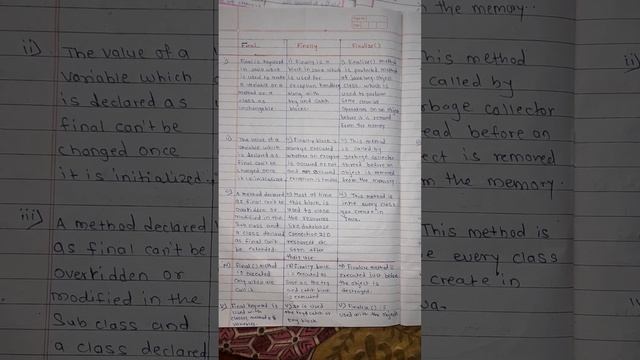 ii) The value of a
variable which
is declared as
final can't be
changed once
it is initialized.
iii) A method declared
as final can't be
overridden or
modified in the
Sub class and
a class declared
Final
Finally
Finalize()
i) Final is keyword
in Java which
is used to make
a variable or a
method or a
class as
unchangable
i) Finally is a
block in Java which
is used for
exception handling
along with
try and catch
blocks.
i) Finalize() method
is protected method
of java.lang.object
class which is
used to perform
some
operations on an object
before it is removed
from the memory
ii) The value of a
variable which
is declared as
final can't be
changed once
it is initialized
Finally block is
always executed
whether an exception
is occured or not
exception is handled
This method
is called by
garbage collector
thread before an
object is removed
from the memory.
A method declared
as final can't be
overridden or
modified in the
Sub class and
a class declared
as final can't
be extended.
Most of time
this block is
used to close
the resources
like database
connection I/O
resources etc
soon after
their use.
This method is
in the every class
you create in
Java.
Final() method
is executed
only when we
call it
Finally block
is executed as
soon as the try
and catch block
is executed
Finalize method is
executed just before
the object is
destroyed.
v) Final keyword is
used with
classes, methods &
variables.
is used
try block.
v) Finalize() is
used with the object
n the memory.
his method
called by
rbage collector
ead before an
ect is removed
m the memory.
iii)
This method is
e every class
create in
va.